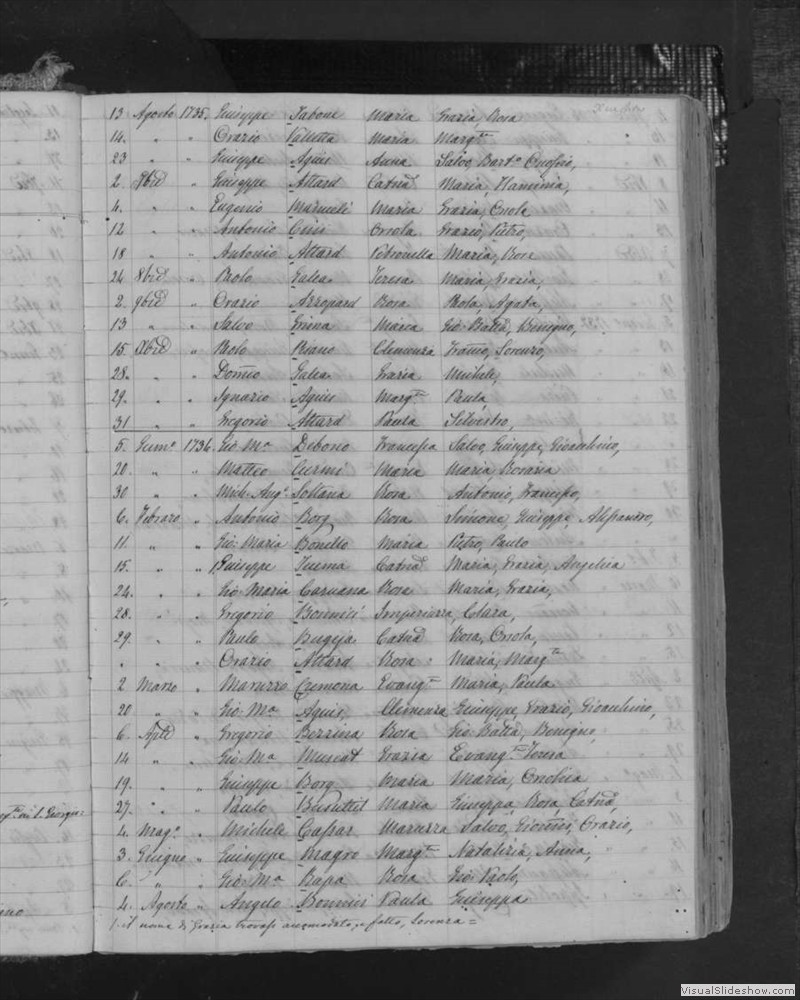 13 Agosto 1735. Giuseppe Tabone Maria Grazia, Rosa
14. " " Orazio Valletta Maria Margta
23 " " Giuseppe Agius Anna Salvo, Barto Onofrio,
2. 7bre " Giuseppe Attard Catna Maria, Flaminia,
4. " " Eugenio Mamueli Maria Grazia, Orsola
12 " " Antonio Ciui Orsola Grazio, Pietro,
18 " " Antonio Attard Petronella Maria, Rosa
24 8bre " Paolo Galea Teresa Maria, Grazia,
2. 9bre " Orazio Azzopard Rosa Paola, Agata,
13 " " Salvo Griena Maria Gio Batta, Benigno,
15. Xbre " Paolo Pisano Clemenza Franco, Lorenzo,
28. " " Domco Galea Grazia Michele,
29. " " Ignazio Agius Margta Paula
31 " " Gregorio Attard Paula Silvestro,
5. Genno 1736 Gio Ma Debono Francesca Salvo, Giuseppe, Gioachino,
20. " " Matteo Cermi Maria Maria, Rosaria
30 " " Mich. Ango Soltana Rosa Antonio, Francesco,
6. Febraro " Antonio Borg Rosa Simone, Giuseppe, Alessandro,
11. " " Gio: Maria Bonello Maria Pietro, Paulo
15. " " 1. Giuseppe Tuema Catna Maria, Grazia, Angelica
24. " " Gio: Maria Caruana Rosa Maria, Grazia,
28. " " Gregorio Bonnici Imperiuzza, Clara,
29. " " Paulo Bugeja Catna Rosa, Orsola,
" " " Orazio Attard Rosa Maria, Margta
2 Marzo " Maruzzo Cremona Evangta Maria, Paula
20 " " Gio: Ma Agius Clemenza Giuseppe, Grazio, Gioachino,
6. Aple " Gregorio Bezzina Rosa Gio Batta, Benigno,
14 " " Gio: Ma Muscat Grazia Evangta Teresa
19. " " Giuseppe Borg Maria Maria, Onofria
27. " " Paulo Busuttil Maria Giuseppa, Rosa, Catna,
4. Mago " Michele Caspar Maruzza Salvo, Orazio,
3. Giugno " Giuseppe Magro Margta Natalizia, Anna,
6. " " Gio: Ma Rapa Rosa Gio: Paolo,
4. Agosto " Angelo Bonnici Paula Giuseppa
1. il nome di Grazia trovasi accomodato, e fatto, Lorenza =
VisualSlideshow.com